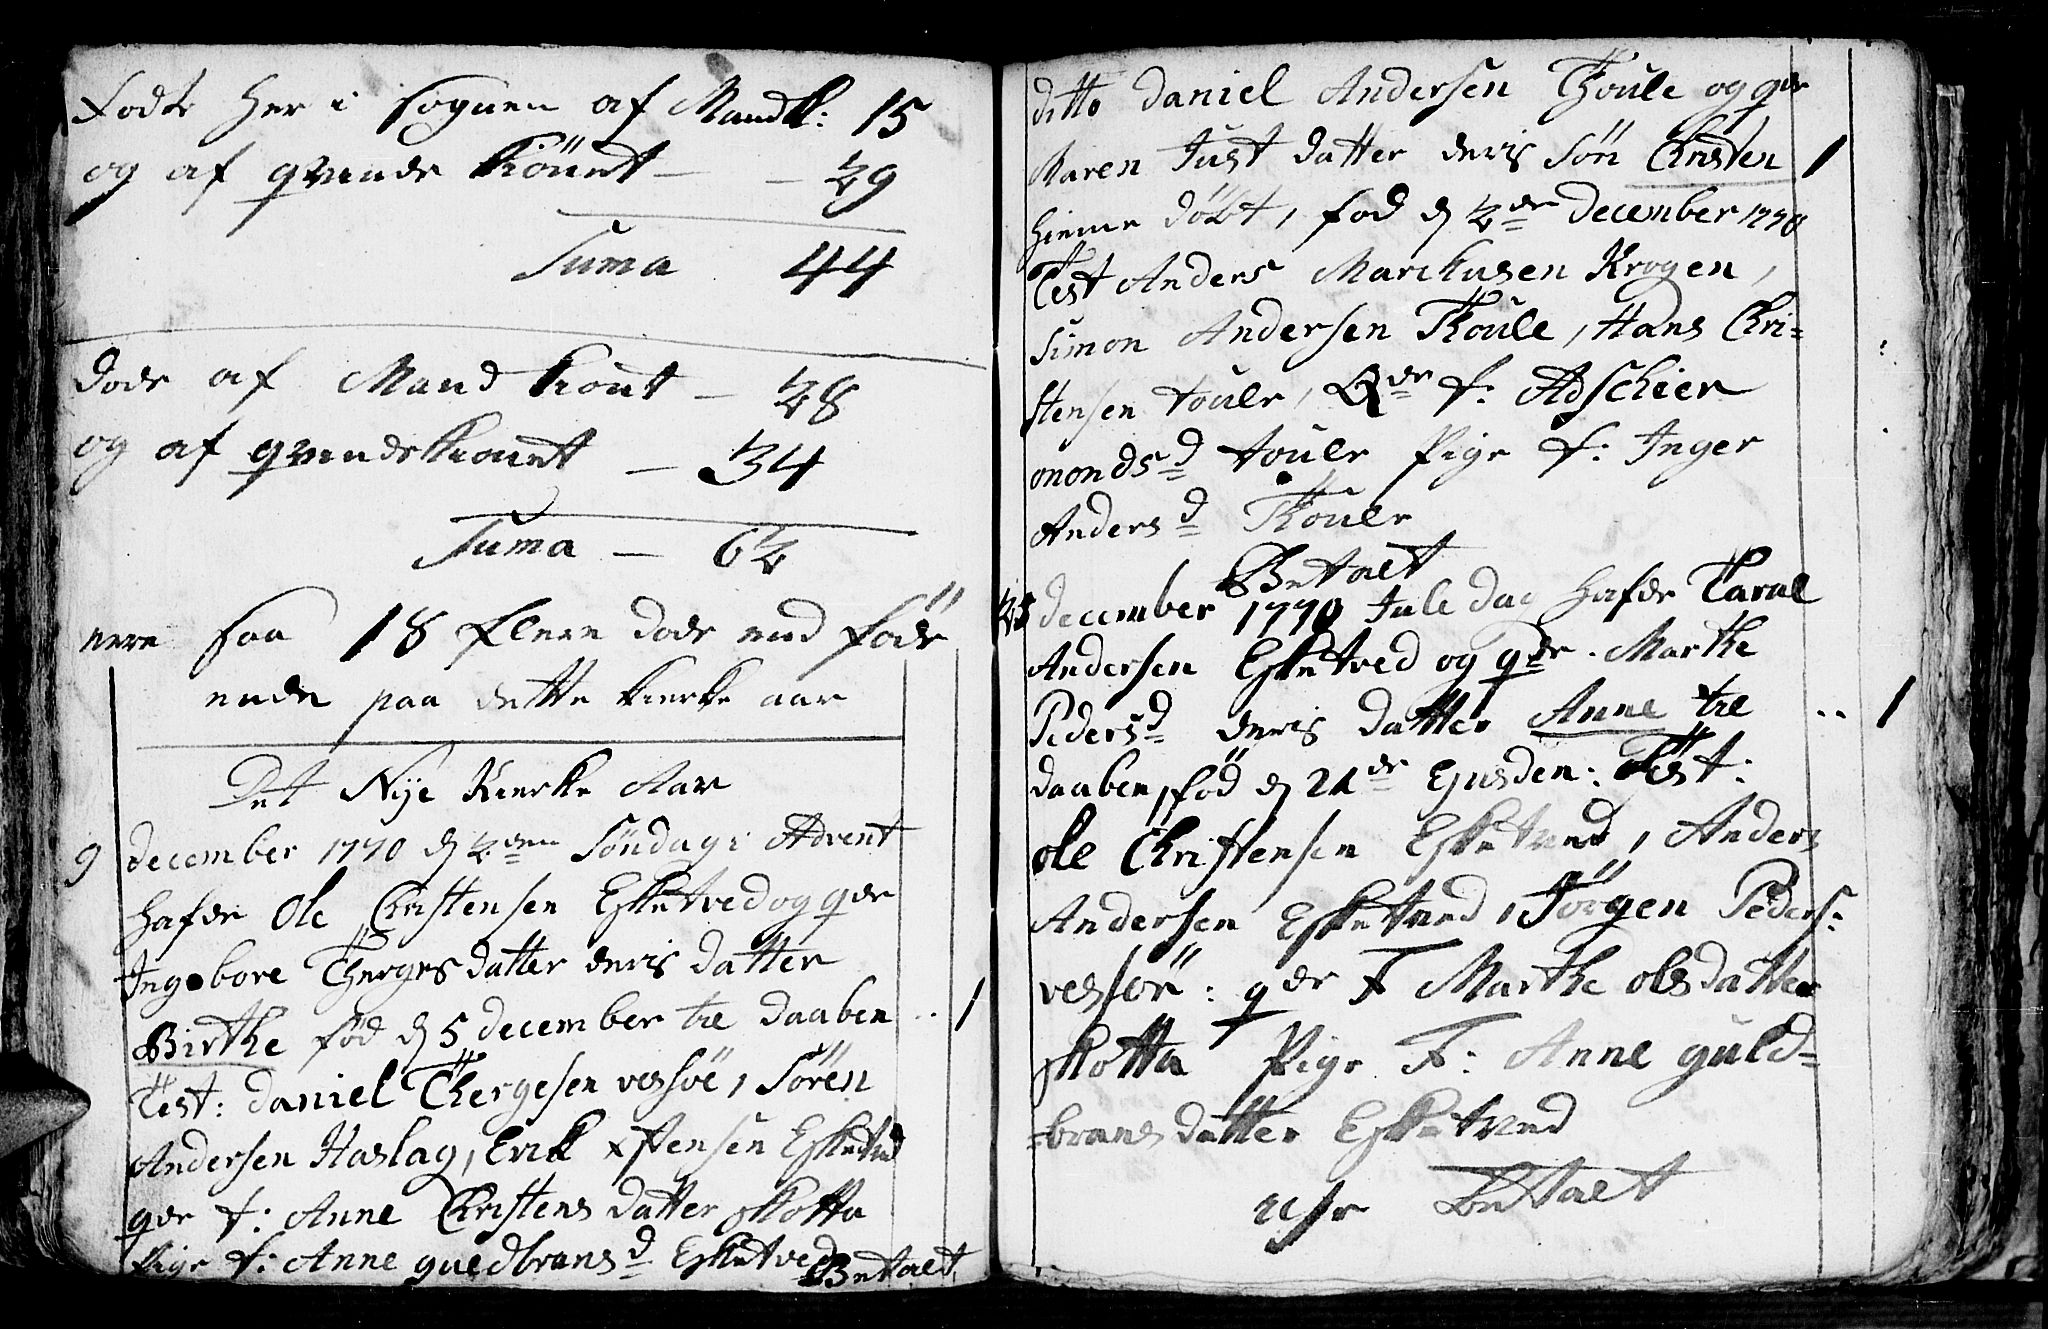 Fødte her i Sognen af Mandk: 15
og af qvinde Kiönnet — — 29
Suma 44
Døde af Mand Kiönt — 28
og af qvindekiönnet — 34
Suma — 62
saa 18 flere døde end föd
ende paa dette kierke aar
Det Nÿe Kierke Aar
9 december 1770 d 2den Söndag i Advent
hafde Ole Christensen Esketved og qde
Ingebore Thergesdatter deris datter
Birthe fød d 5 december til daaben .. 1
Test: Daniel Thergesen vessöe, Sören
Andersen Haslag, Erik xstensen Esketved
qde f: Anne Christens datter skotta
Pige f: Anne guldbransd Esketved Betalt
ditto Daniel Andersen Thoule og qde
Maren Just datter deris Sön Christen 1
hieme döbt, fød d 2den December 1770
Test Anders Marckusen Krogen,
Simon Andersen Thoule, Hans Chri-
stensen toule, Qde f: Adschier
monds d toule Pige f: Inger
Anders d Thoule
Betalt
25 december 1770 Juledag hafde Taral
Andersen Esketved og qde. Marthe
Pedersd deris datter Anne til .. 1
daaben, föd d 21de Ejusdem: Test:
Ole Christensen Esketved, Anders
Andersen Esketved, Jörgen Peders:
vessöe: qde F Marthe olsdatter
skotta Pige F: Anne guld-
-brans datter Esketved
Betalt